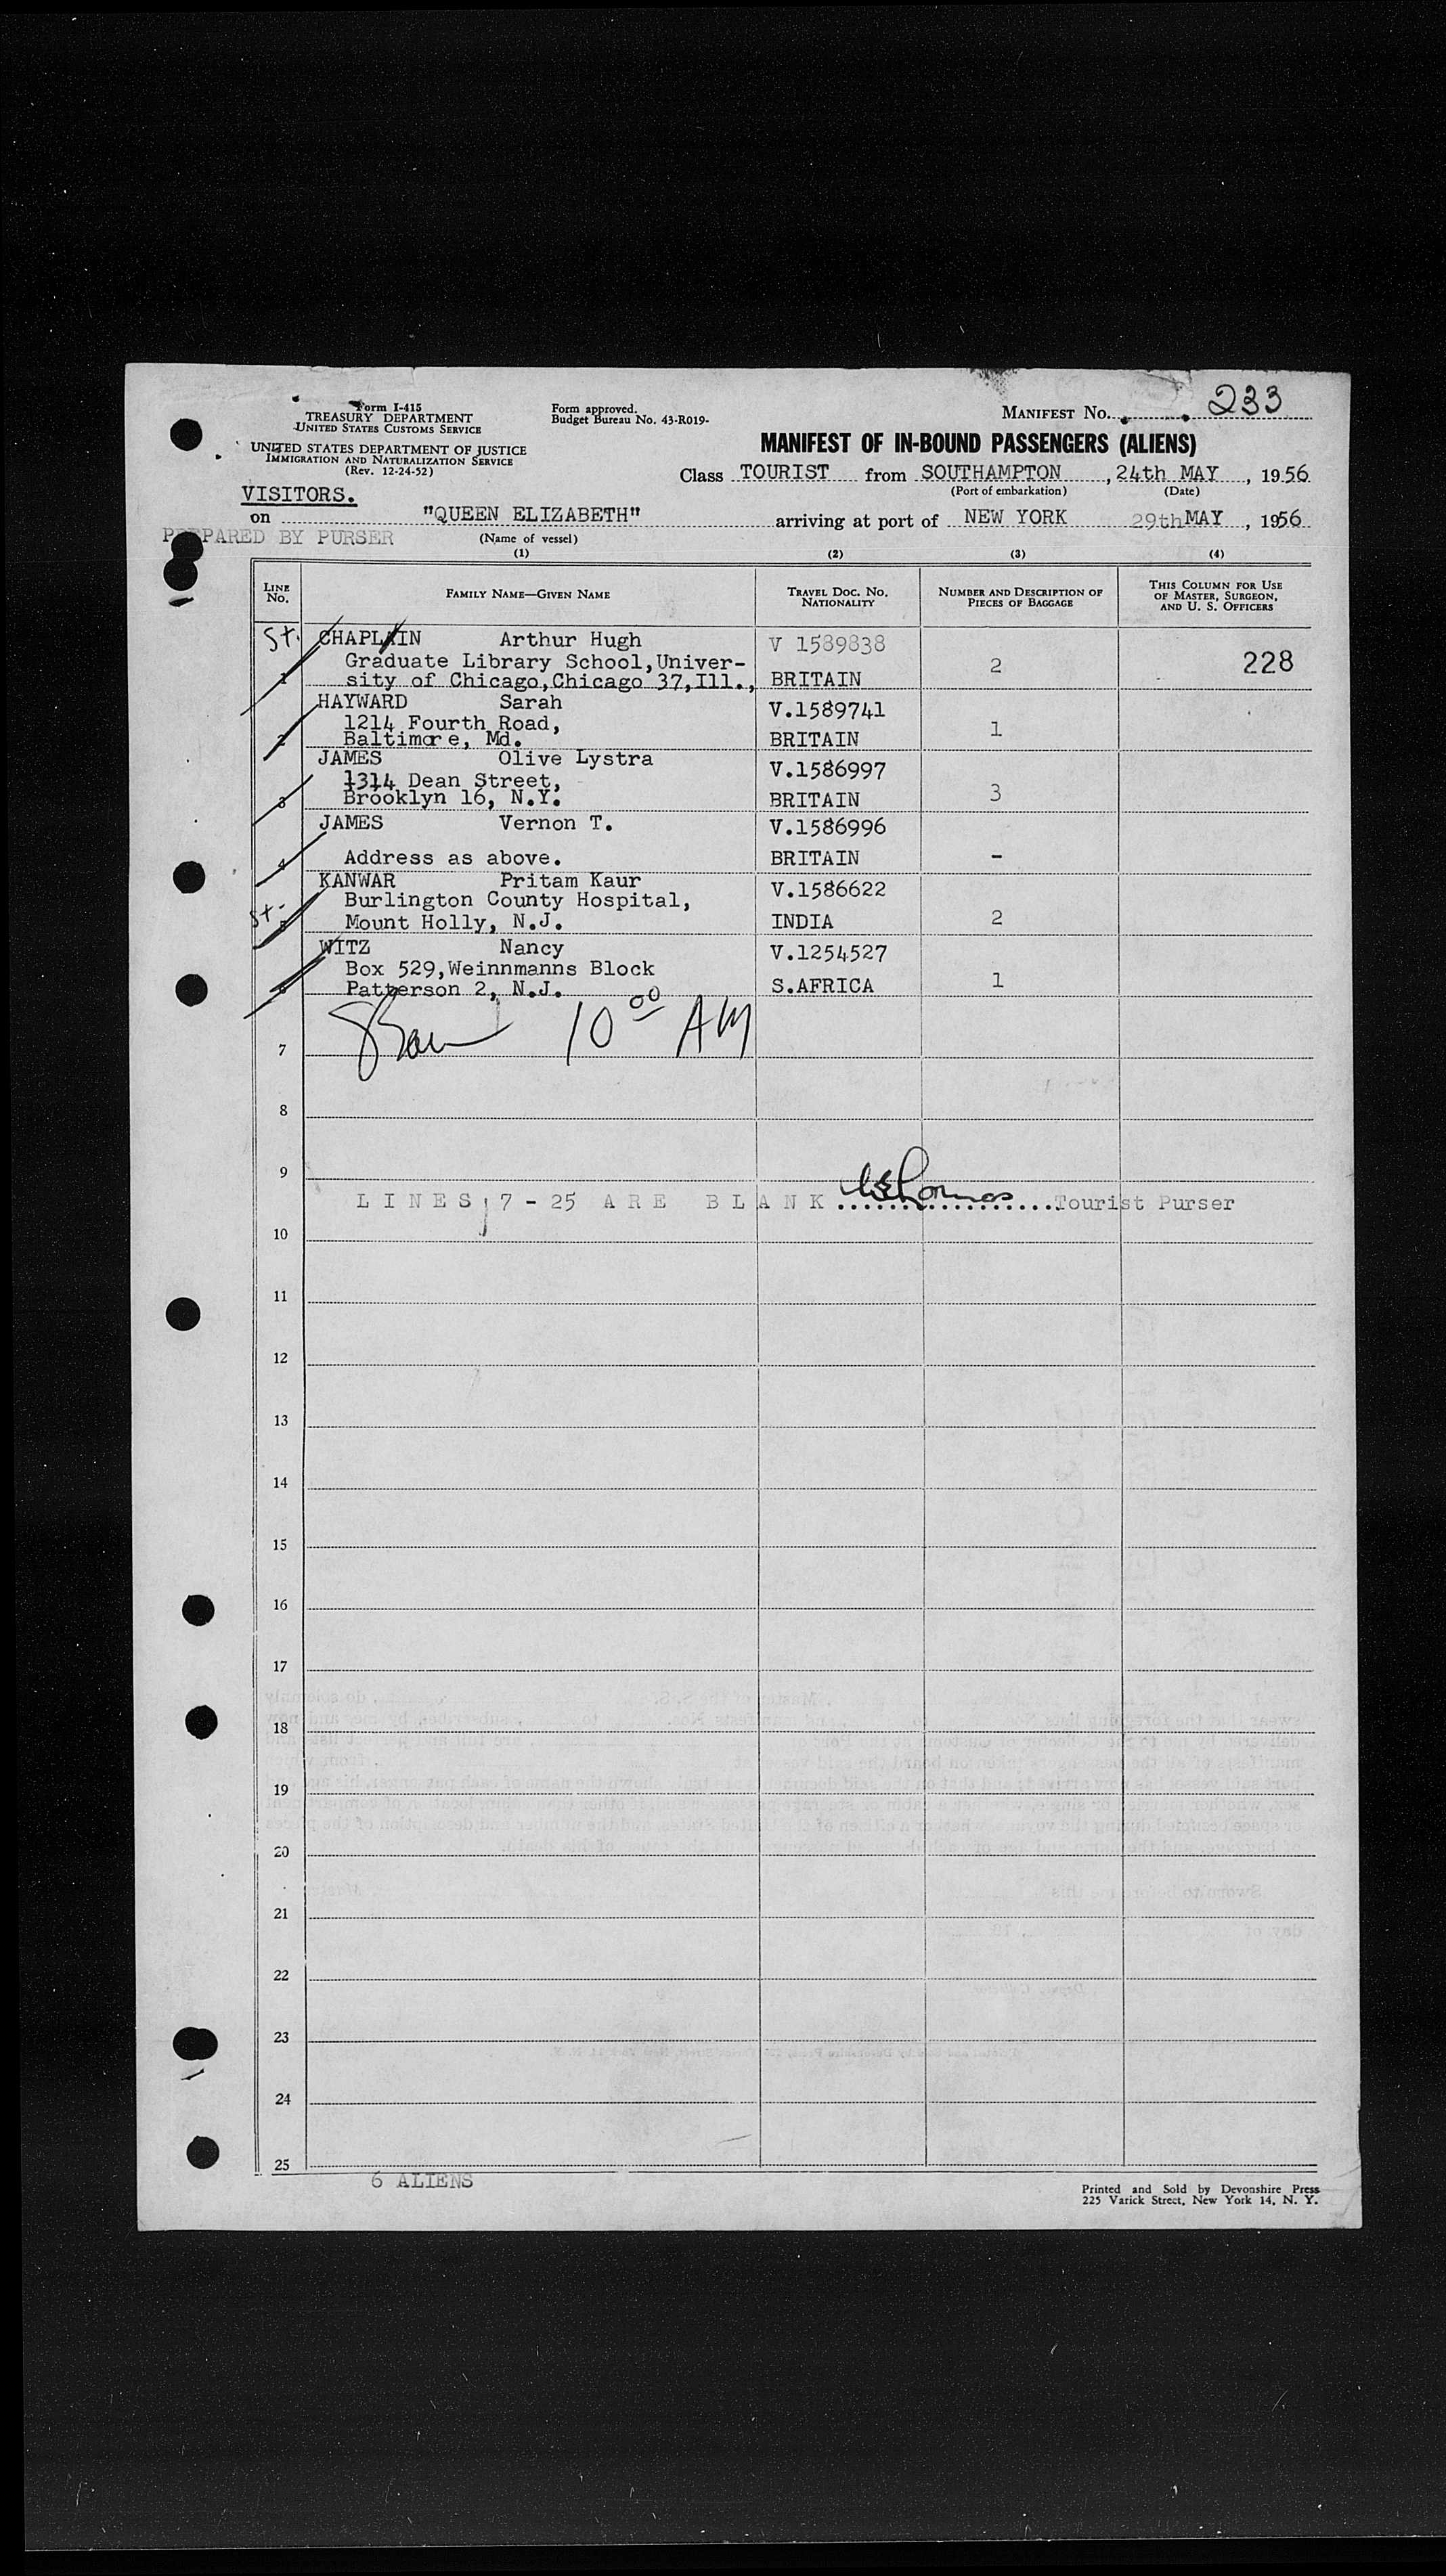 233
Form I-415
TREASURY DEPARTMENT
UNITED STATES CUSTOMS SERVICE
Form approved.
Budget Bureau No. 43-R019-
MANIFEST No.
UNITED STATES DEPARTMENT OF JUSTICE
IMMIGRATION AND NATURALIZATION SERVICE
(Rev. 12-24-52)
MANIFEST OF IN-BOUND PASSENGERS (ALIENS)
Class TOURIST from SOUTHAMPTON, 24th MAY, 1956
(Port of embarkation) (Date)
VISITORS.
on "QUEEN ELIZABETH" arriving at port of NEW YORK 29th MAY, 1956
PREPARED BY PURSER
(Name of vessel)
(1) (2) (3) (4)
LINE No. FAMILY NAME—GIVEN NAME TRAVEL DOC. NO. NATIONALITY NUMBER AND DESCRIPTION OF PIECES OF BAGGAGE THIS COLUMN FOR USE OF MASTER, SURGEON, AND U. S. OFFICERS
St. CHAPLAIN Arthur Hugh V 1589838
Graduate Library School,Univer- 2 228
1 sity of Chicago,Chicago 37,Ill., BRITAIN
HAYWARD Sarah V.1589741
1214 Fourth Road, 1
2 Baltimore, Md. BRITAIN
JAMES Olive Lystra V.1586997
1314 Dean Street,
3 Brooklyn 16, N.Y. BRITAIN 3
JAMES Vernon T. V.1586996
4 Address as above. BRITAIN -
KANWAR Pritam Kaur V.1586622
St- Burlington County Hospital,
5 Mount Holly, N.J. INDIA 2
WITZ Nancy V.1254527
Box 529,Weinnmanns Block
6 Patterson 2, N.J. S.AFRICA 1
10 00 AM
7
8
9
LINES 7 - 25 ARE BLANK ....................Tourist Purser
10
11
12
13
14
15
16
17
18
19
20
21
22
23
24
25
6 ALIENS
Printed and Sold by Devonshire Press
225 Varick Street, New York 14, N. Y.